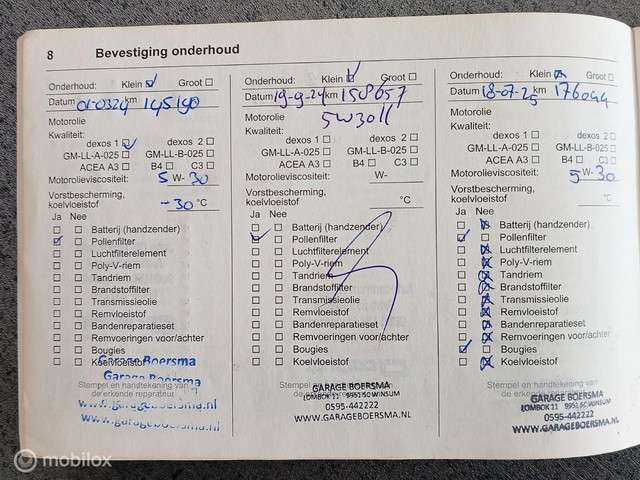 8 Bevestiging onderhoud
Onderhoud: Klein ☑ Groot ☐
Datum 01-0324 km 145190
Motorolie
Kwaliteit:
dexos 1 ☑ dexos 2 ☐
GM-LL-A-025 ☐ GM-LL-B-025 ☐
ACEA A3 ☐ B4 ☐ C3 ☐
Motorolieviscositeit: 5 W- 30
Vorstbescherming,
koelvloeistof -30 °C
Ja Nee
☐ ☐ Batterij (handzender)
☑ ☐ Pollenfilter
☐ ☐ Luchtfilterelement
☐ ☐ Poly-V-riem
☐ ☐ Tandriem
☐ ☐ Brandstoffilter
☐ ☐ Transmissieolie
☐ ☐ Remvloeistof
☐ ☐ Bandenreparatieset
☐ ☐ Remvoeringen voor/achter
☐ ☐ Bougies
☐ ☐ Koelvloeistof
Garage Boersma
Garage Boersma
Stempel en handtekening van
de erkende reparateur
www.garageboersma.nl
www.garageboersma.nl
Onderhoud: Klein ☑ Groot ☐
Datum 19-9-24 km 158657
Motorolie 5W30ll
Kwaliteit:
dexos 1 ☐ dexos 2 ☐
GM-LL-A-025 ☐ GM-LL-B-025 ☐
ACEA A3 ☐ B4 ☐ C3 ☐
Motorolieviscositeit: W-
Vorstbescherming,
koelvloeistof °C
Ja Nee
☐ ☐ Batterij (handzender)
☑ ☐ Pollenfilter
☐ ☐ Luchtfilterelement
☐ ☐ Poly-V-riem
☐ ☐ Tandriem
☐ ☐ Brandstoffilter
☐ ☐ Transmissieolie
☐ ☐ Remvloeistof
☐ ☐ Bandenreparatieset
☐ ☐ Remvoeringen voor/achter
☐ ☐ Bougies
☐ ☐ Koelvloeistof
Stempel en handtekening van
GARAGE BOERSMA
LOMBOK 11 9951 SC WINSUM
0595-442222
WWW.GARAGEBOERSMA.NL
Onderhoud: Klein ☒ Groot ☐
Datum 18-07-25 km 176044
Motorolie
Kwaliteit:
dexos 1 ☐ dexos 2 ☐
GM-LL-A-025 ☐ GM-LL-B-025 ☐
ACEA A3 ☐ B4 ☐ C3 ☐
Motorolieviscositeit: 5 W- 30
Vorstbescherming,
koelvloeistof °C
Ja Nee
☐ ☒ Batterij (handzender)
☑ ☐ Pollenfilter
☐ ☒ Luchtfilterelement
☐ ☒ Poly-V-riem
☐ ☒ Tandriem
☐ ☒ Brandstoffilter
☐ ☒ Transmissieolie
☐ ☒ Remvloeistof
☐ ☒ Bandenreparatieset
☐ ☒ Remvoeringen voor/achter
☑ ☐ Bougies
☐ ☒ Koelvloeistof
Stempel en handtekening van
de erkende reparateur
GARAGE BOERSMA
LOMBOK 11 9951 SC WINSUM
0595-442222
WWW.GARAGEBOERSMA.NL
mobilox